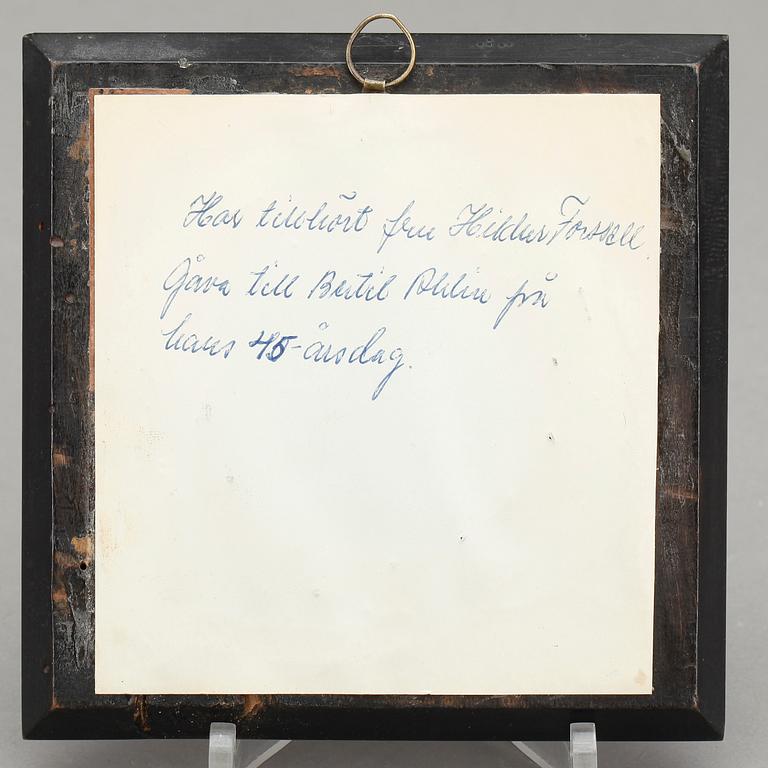 Har tillhört fru Hildur Forssell.
Gåva till Bertil Ohlin på
hans 45-årsdag.